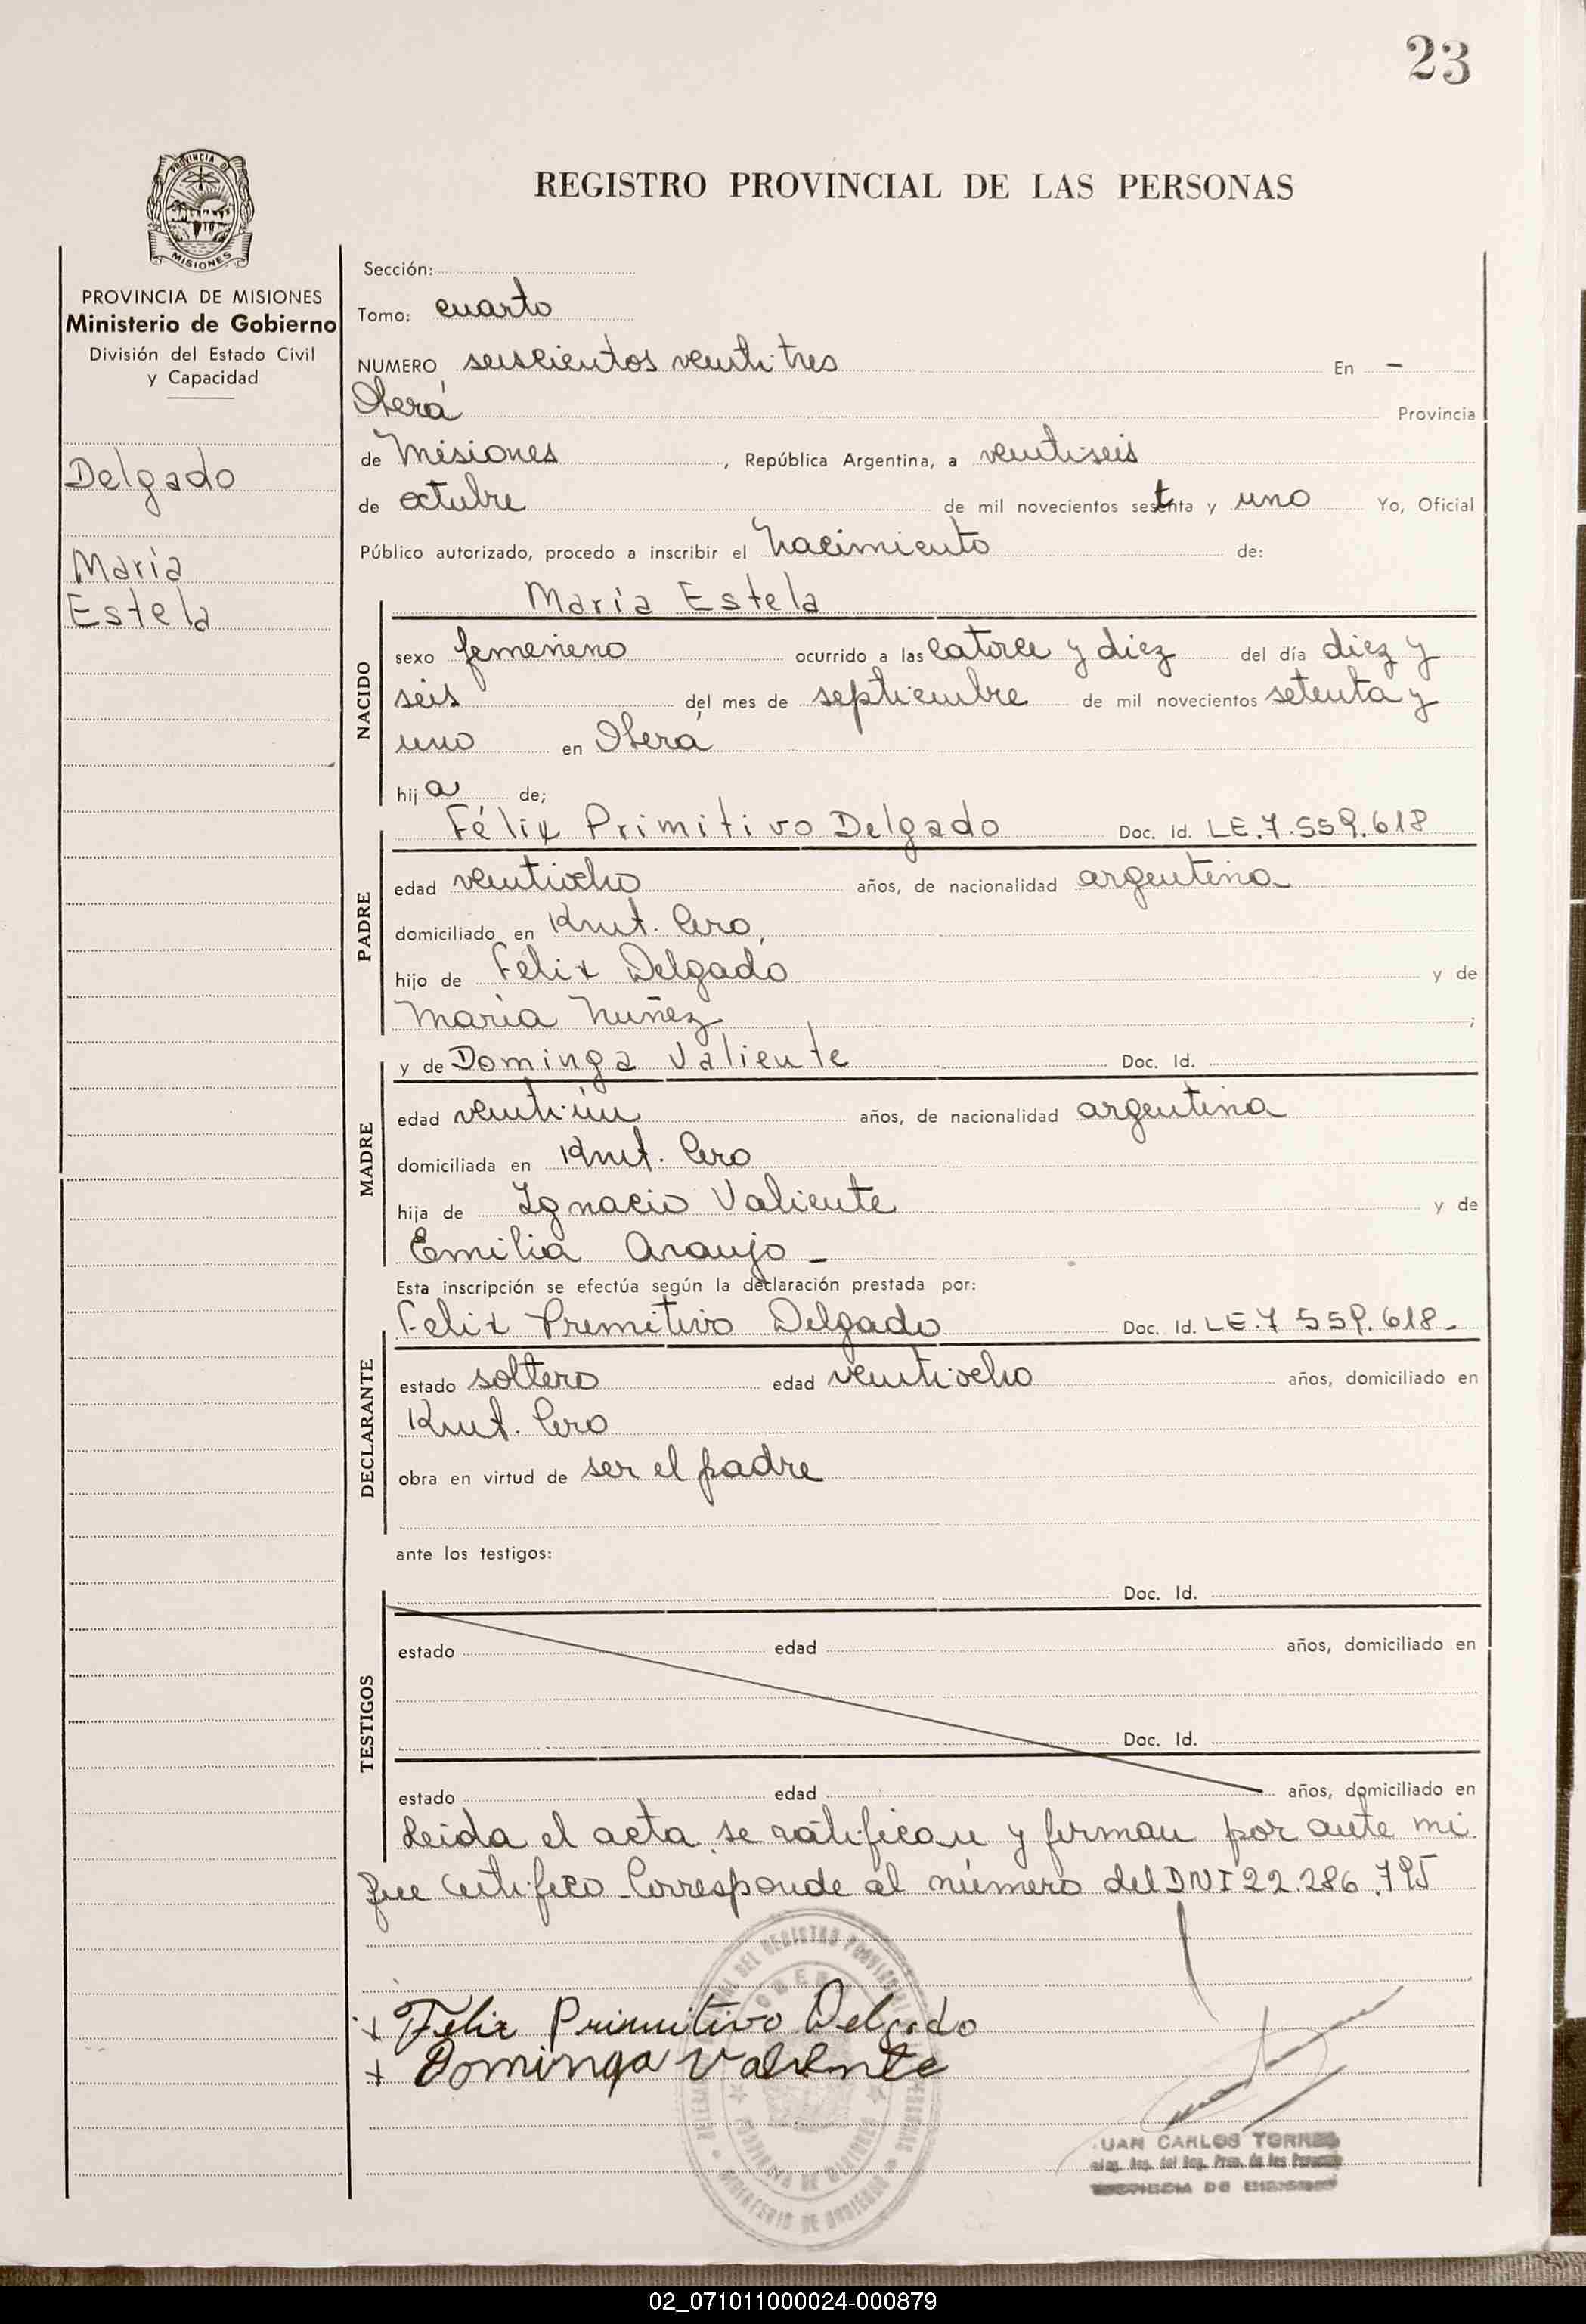 23
PROVINCIA DE
MISIONES
REGISTRO PROVINCIAL DE LAS PERSONAS
PROVINCIA DE MISIONES
Ministerio de Gobierno
División del Estado Civil
y Capacidad
Delgado
María
Estela
Sección:
Tomo: cuarto
NUMERO seiscientos venti tres En -
Oberá Provincia
de Misiones, República Argentina, a ventiseis
de octubre de mil novecientos setenta y uno Yo, Oficial
Público autorizado, procedo a inscribir el Nacimiento de:
María Estela
NACIDO
sexo femenino ocurrido a las catorce y diez del día diez y
seis del mes de septiembre de mil novecientos setenta y
uno en Oberá
hija de;
PADRE
Félix Primitivo Delgado Doc. Id. LE.7.559.618
edad ventiocho años, de nacionalidad argentina
domiciliado en Kmt. Cero,
hijo de Félix Delgado y de
María Nuñez ;
MADRE
y de Dominga Valiente Doc. Id.
edad venti-ún años, de nacionalidad argentina
domiciliada en Kmt. Cero
hija de Ignacio Valiente y de
Emilia Araujo -
Esta inscripción se efectúa según la declaración prestada por:
DECLARANTE
Felix Primitivo Delgado Doc. Id. LE.7 559.618-
estado soltero edad ventiocho años, domiciliado en
Kmt. Cero
obra en virtud de ser el padre
ante los testigos:
TESTIGOS
Doc. Id.
estado edad años, domiciliado en
Doc. Id.
estado edad años, domiciliado en
Leida el acta se ratifican y firman por ante mi
que certifico - Corresponde al número del DNI 22.286.795
+ Felix Primitivo Delgado
+ Dominga Valiente
JUAN CARLOS TORRES
PROVINCIA DE MISIONES
02_071011000024-000879